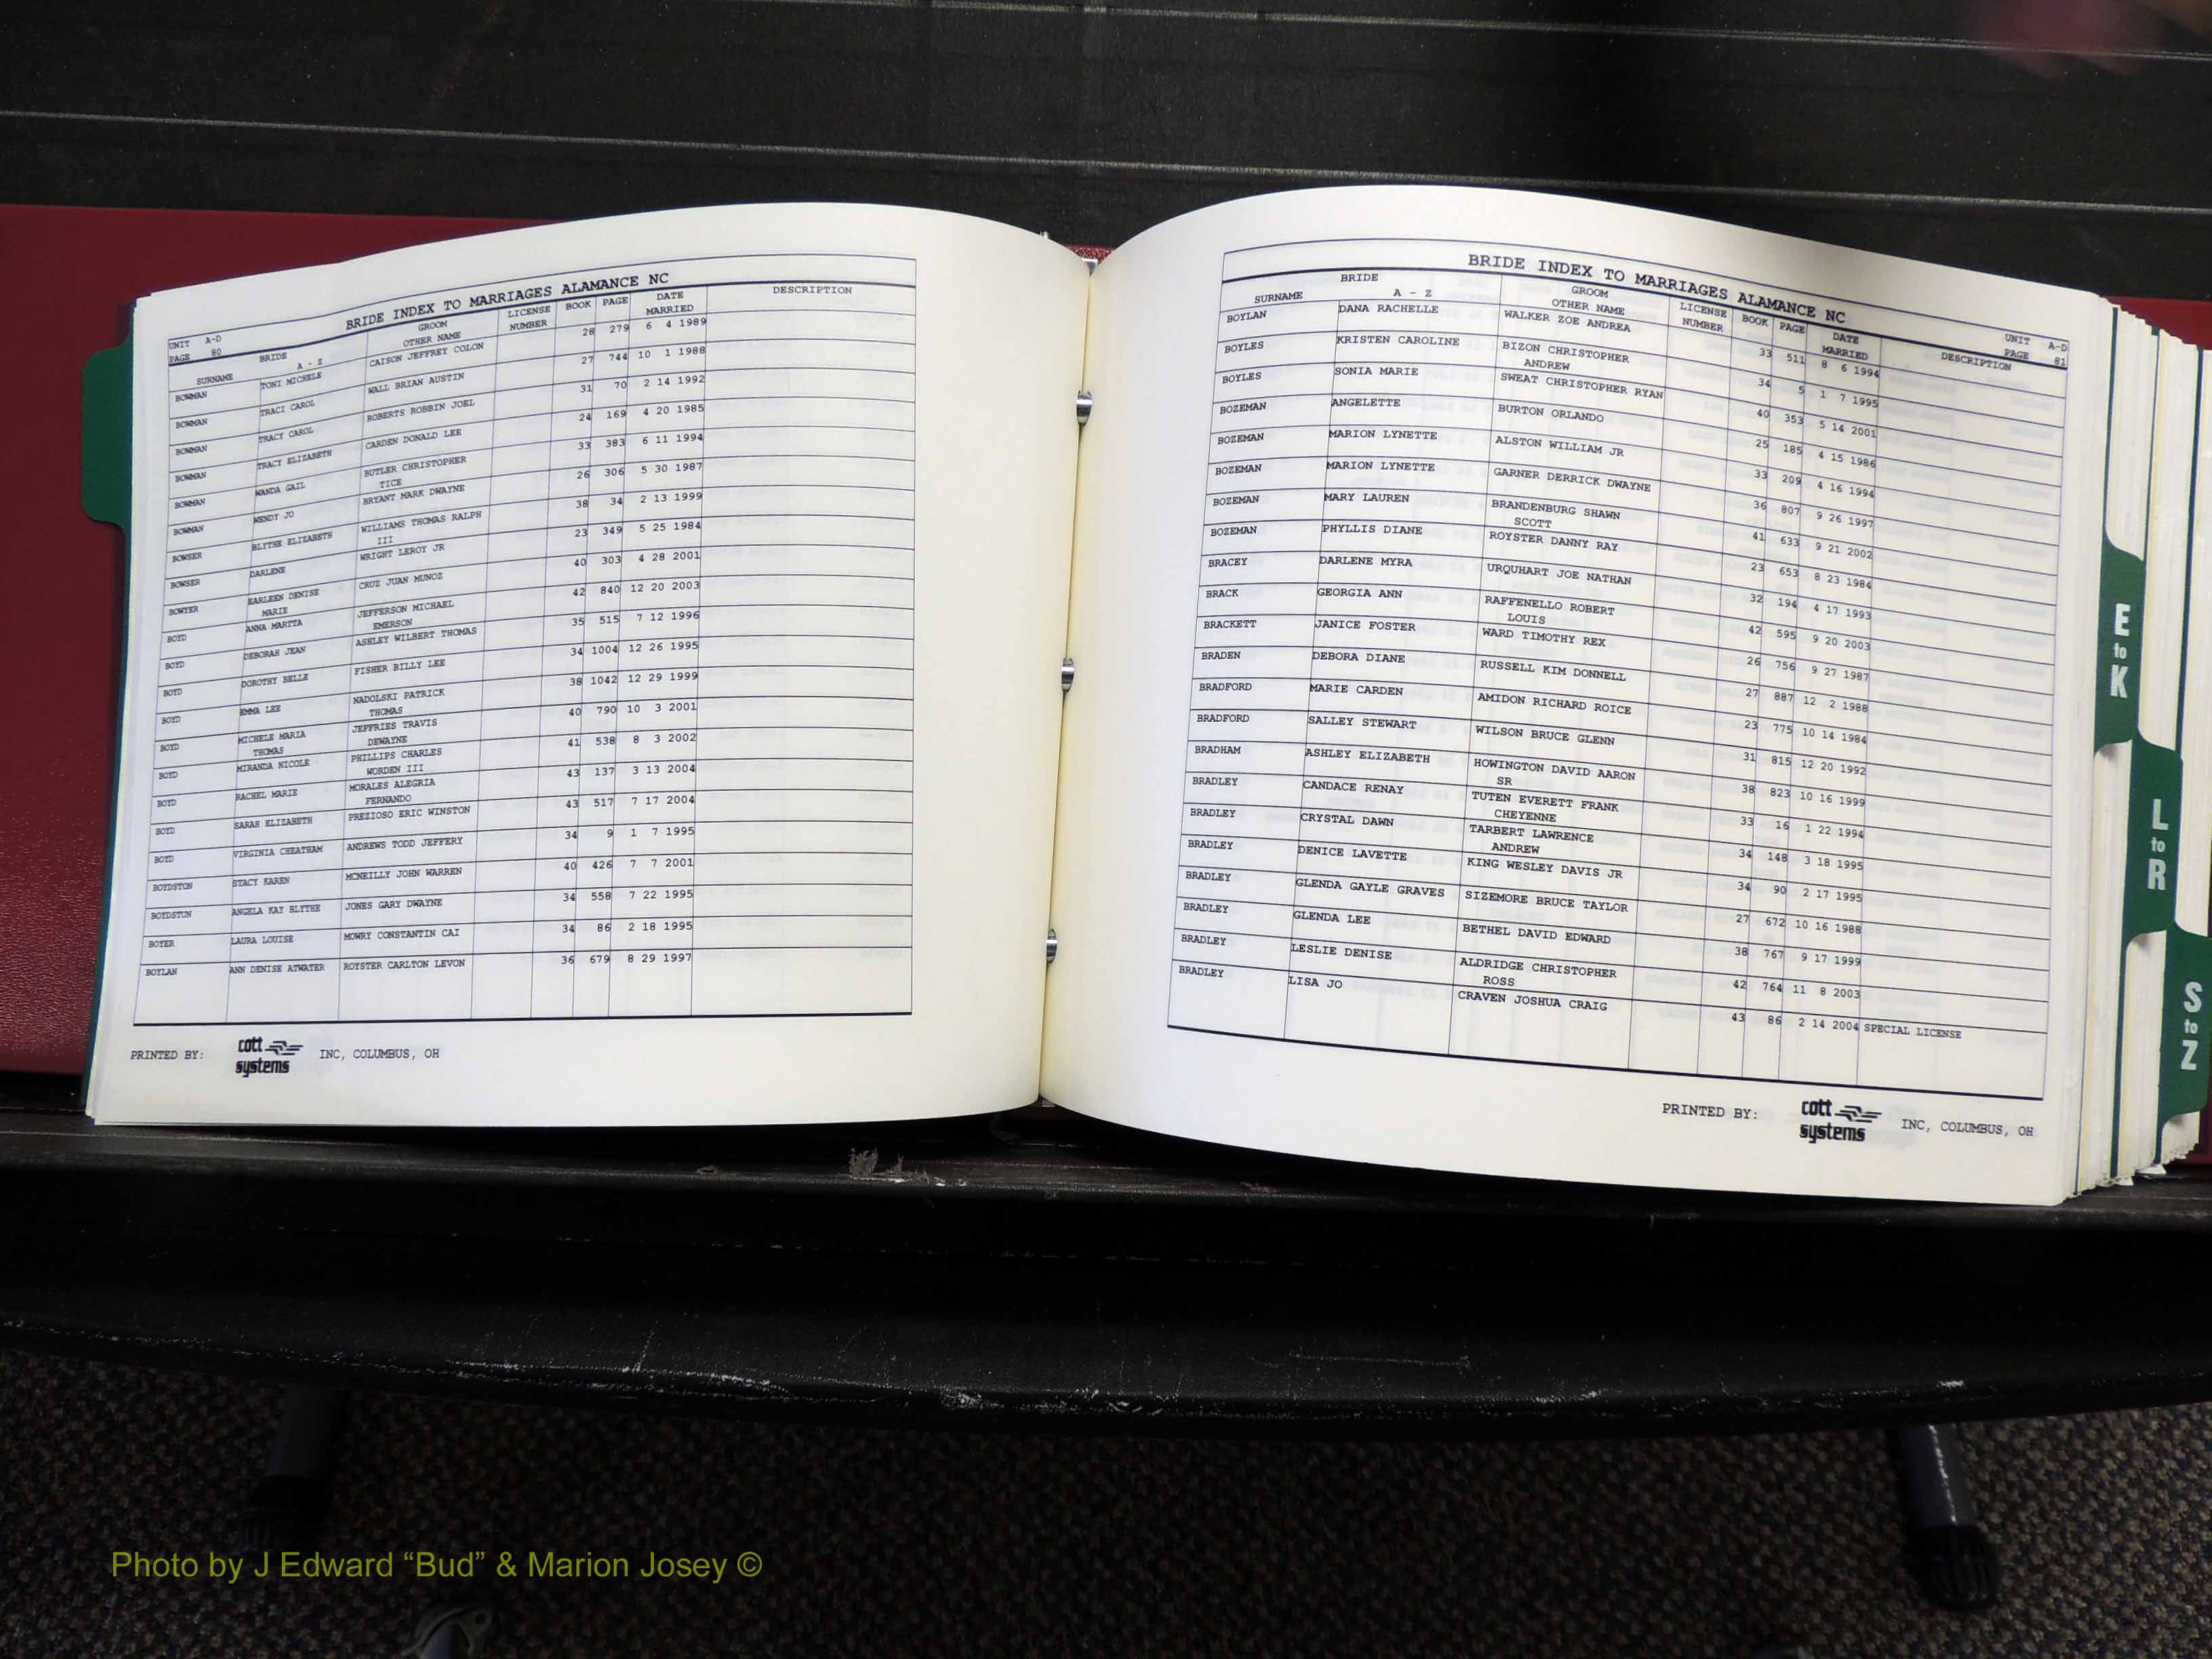 BRIDE INDEX TO MARRIAGES ALAMANCE NC
UNIT A-D
PAGE 80
SURNAME BRIDE A - Z GROOM OTHER NAME LICENSE NUMBER BOOK PAGE DATE MARRIED DESCRIPTION
BOWMAN TONI MICHELE CAISON JEFFREY COLON 28 279 6 4 1989
BOWMAN TRACI CAROL WALL BRIAN AUSTIN 27 744 10 1 1988
BOWMAN TRACY CAROL ROBERTS ROBBIN JOEL 31 70 2 14 1992
BOWMAN TRACY ELIZABETH CARDEN DONALD LEE 24 169 4 20 1985
BOWMAN WANDA GAIL BUTLER CHRISTOPHER 33 383 6 11 1994
TICE
BOWMAN WENDY JO BRYANT MARK DWAYNE 26 306 5 30 1987
BOWSER BLYTHE ELIZABETH WILLIAMS THOMAS RALPH 38 34 2 13 1999
III
BOWSER DARLENE WRIGHT LEROY JR 23 349 5 25 1984
BOWYER EARLEEN DENISE CRUZ JUAN MUNOZ 40 303 4 28 2001
MARIE
BOYD ANNA MARTTA JEFFERSON MICHAEL 42 840 12 20 2003
EMERSON
BOYD DEBORAH JEAN ASHLEY WILBERT THOMAS 35 515 7 12 1996
BOYD DOROTHY BELLE FISHER BILLY LEE 34 1004 12 26 1995
BOYD EMMA LEE NADOLSKI PATRICK 38 1042 12 29 1999
THOMAS
BOYD MICHELE MARIA JEFFRIES TRAVIS 40 790 10 3 2001
THOMAS DEWAYNE
BOYD MIRANDA NICOLE PHILLIPS CHARLES 41 538 8 3 2002
WORDEN III
BOYD RACHEL MARIE MORALES ALEGRIA 43 137 3 13 2004
FERNANDO
BOYD SARAH ELIZABETH PREZIOSO ERIC WINSTON 43 517 7 17 2004
BOYD VIRGINIA CHEATHAM ANDREWS TODD JEFFERY 34 9 1 7 1995
BOYDSTON STACY KAREN MCNEILLY JOHN WARREN 40 426 7 7 2001
BOYDSTUN ANGELA KAY BLYTHE JONES GARY DWAYNE 34 558 7 22 1995
BOYER LAURA LOUISE MOWRY CONSTANTIN CAI 34 86 2 18 1995
BOYLAN ANN DENISE ATWATER ROYSTER CARLTON LEVON 36 679 8 29 1997
PRINTED BY: cott systems INC, COLUMBUS, OH
BRIDE INDEX TO MARRIAGES ALAMANCE NC
UNIT A-D
PAGE 81
SURNAME BRIDE A - Z GROOM OTHER NAME LICENSE NUMBER BOOK PAGE DATE MARRIED DESCRIPTION
BOYLAN DANA RACHELLE WALKER ZOE ANDREA 33 511 8 6 1994
BOYLES KRISTEN CAROLINE BIZON CHRISTOPHER 34 5 1 7 1995
ANDREW
BOYLES SONIA MARIE SWEAT CHRISTOPHER RYAN 40 353 5 14 2001
BOZEMAN ANGELETTE BURTON ORLANDO 25 185 4 15 1986
BOZEMAN MARION LYNETTE ALSTON WILLIAM JR 33 209 4 16 1994
BOZEMAN MARION LYNETTE GARNER DERRICK DWAYNE 36 807 9 26 1997
BOZEMAN MARY LAUREN BRANDENBURG SHAWN 41 633 9 21 2002
SCOTT
BOZEMAN PHYLLIS DIANE ROYSTER DANNY RAY 23 653 8 23 1984
BRACEY DARLENE MYRA URQUHART JOE NATHAN 32 194 4 17 1993
BRACK GEORGIA ANN RAFFENELLO ROBERT 42 595 9 20 2003
LOUIS
BRACKETT JANICE FOSTER WARD TIMOTHY REX 26 756 9 27 1987
BRADEN DEBORA DIANE RUSSELL KIM DONNELL 27 887 12 2 1988
BRADFORD MARIE CARDEN AMIDON RICHARD ROICE 23 775 10 14 1984
BRADFORD SALLEY STEWART WILSON BRUCE GLENN 31 815 12 20 1992
BRADHAM ASHLEY ELIZABETH HOWINGTON DAVID AARON 38 823 10 16 1999
SR
BRADLEY CANDACE RENAY TUTEN EVERETT FRANK 33 16 1 22 1994
CHEYENNE
BRADLEY CRYSTAL DAWN TARBERT LAWRENCE 34 148 3 18 1995
ANDREW
BRADLEY DENICE LAVETTE KING WESLEY DAVIS JR 34 90 2 17 1995
BRADLEY GLENDA GAYLE GRAVES SIZEMORE BRUCE TAYLOR 27 672 10 16 1988
BRADLEY GLENDA LEE BETHEL DAVID EDWARD 38 767 9 17 1999
BRADLEY LESLIE DENISE ALDRIDGE CHRISTOPHER 42 764 11 8 2003
ROSS
BRADLEY LISA JO CRAVEN JOSHUA CRAIG 43 86 2 14 2004 SPECIAL LICENSE
PRINTED BY: cott systems INC, COLUMBUS, OH
E to K
L to R
S to Z
Photo by J Edward “Bud” & Marion Josey ©